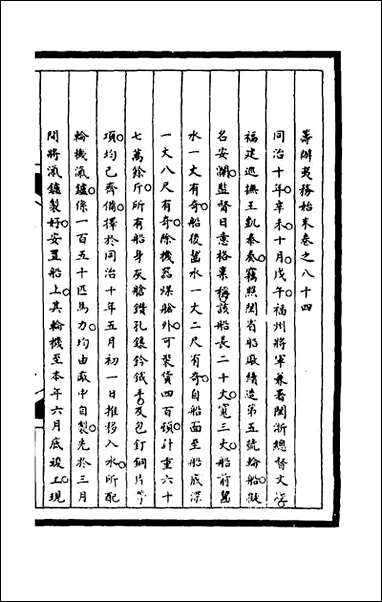 籌辦夷務始末卷之八十四
同治十年辛未十月戊午福州將軍兼署閩浙總督文煜
福建巡撫王凱泰奏竊照閩省船廠續造第五號輪船擬
名安瀾監督日意格稟稱該船長二十丈寬三丈船前舊
水一丈有奇船後舊水一丈二尺有奇自船面至船底深
一丈八尺有奇除機器煤艙外可裝貨四百頓計重六十
七萬餘斤所有船身灰艙鑽孔鑲鈴鐵脅及包釘銅片等
項均已齊備擇於同治十年五月初一日推移入水所配
輪機氣鑪係一百五十匹馬力均由廠中自製先於三月
間將氣鑪製好安置船上其輪機至本年六月底竣工現